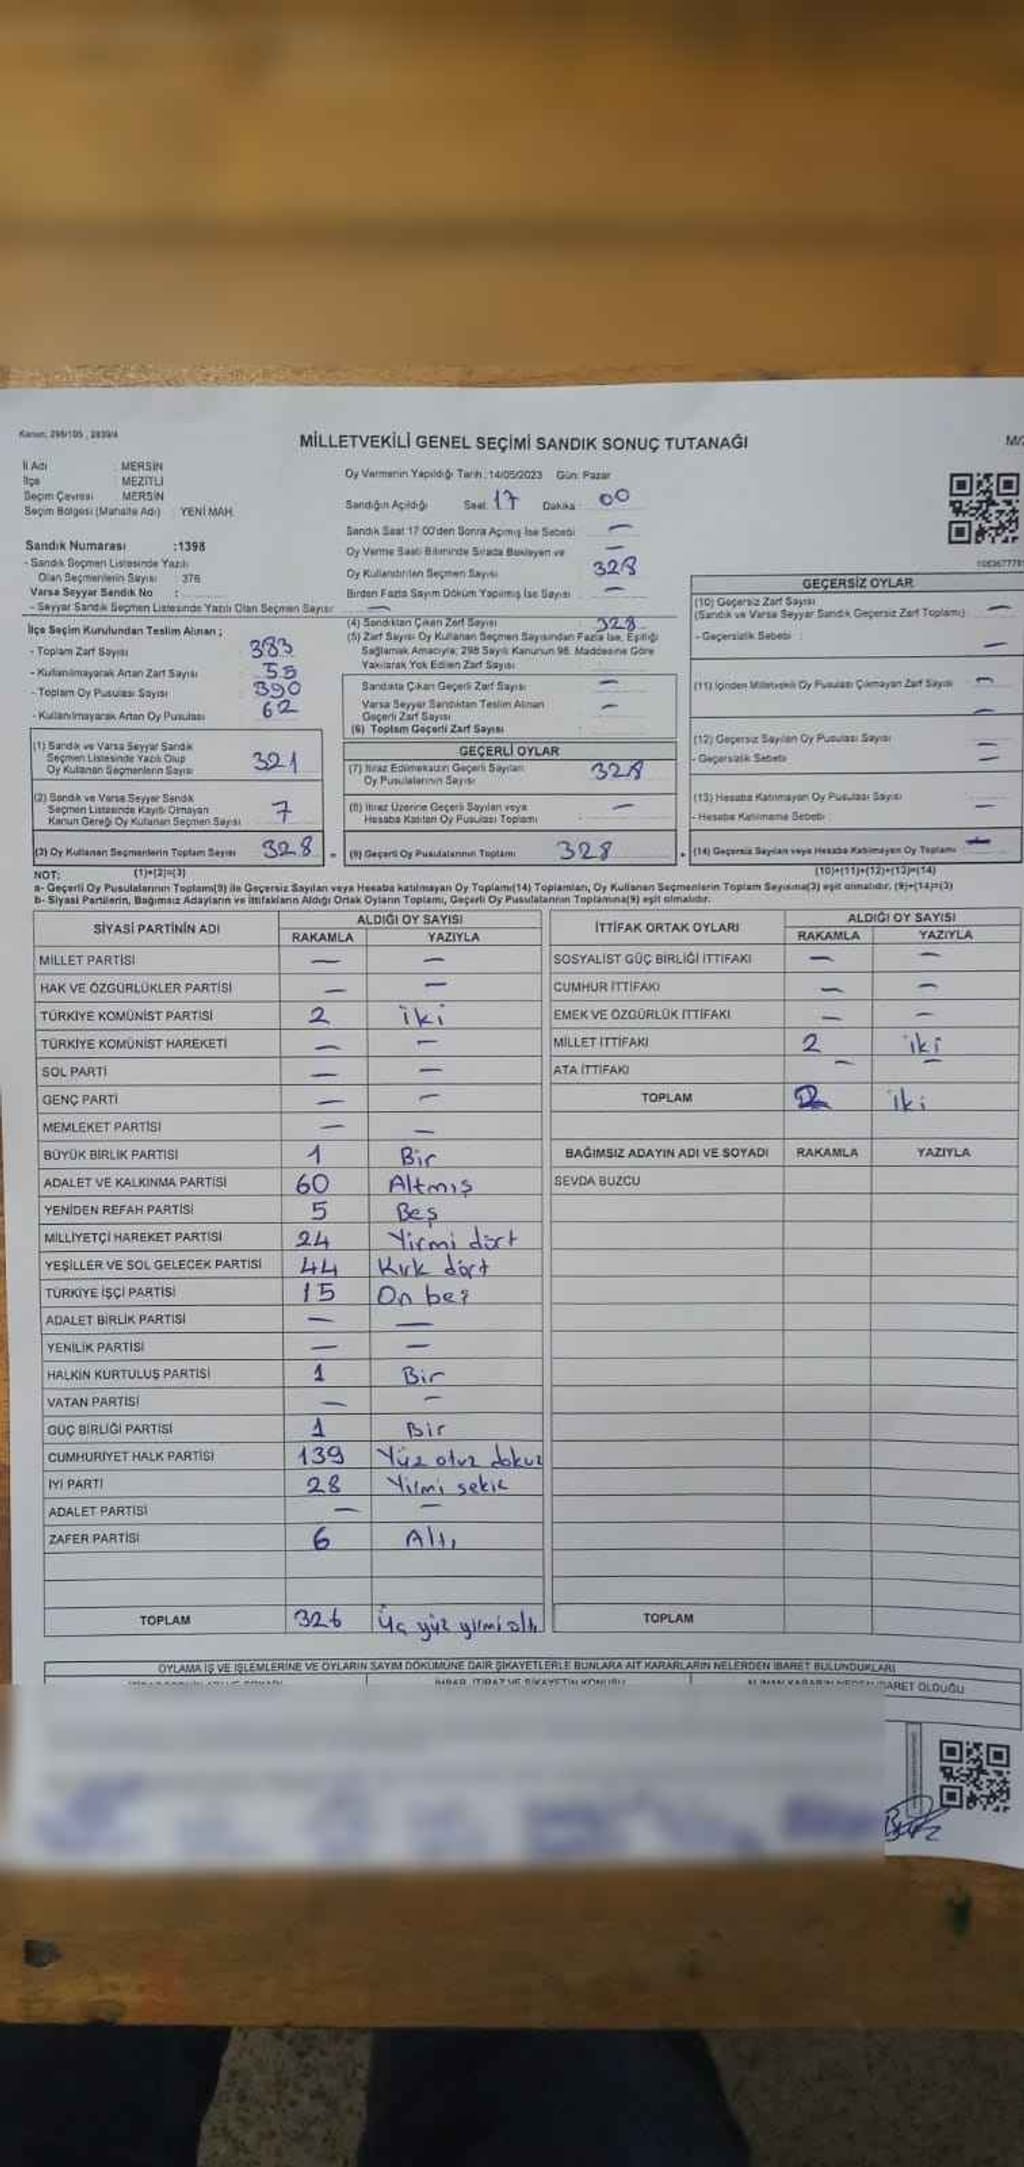 Kanun: 298/105 , 2839/4
MİLLETVEKİLİ GENEL SEÇİMİ SANDIK SONUÇ TUTANAĞI
İl Adı : MERSİN
İlçe : MEZİTLİ
Seçim Çevresi : MERSİN
Seçim Bölgesi (Mahalle Adı) : YENİ MAH.
Sandık Numarası :1398
- Sandık Seçmen Listesinde Yazılı
Olan Seçmenlerin Sayısı : 376
Varsa Seyyar Sandık No :
- Seyyar Sandık Seçmen Listesinde Yazılı Olan Seçmen Sayısı : —
Oy Vermenin Yapıldığı Tarih: 14/05/2023 Gün: Pazar
Sandığın Açıldığı Saat 17 Dakika 00
Sandık Saat 17:00'den Sonra Açılmış İse Sebebi —
Oy Verme Saati Bitiminde Sırada Bekleyen ve —
Oy Kullandırılan Seçmen Sayısı 328
Birden Fazla Sayım Döküm Yapılmış İse Sayısı —
İlçe Seçim Kurulundan Teslim Alınan ;
- Toplam Zarf Sayısı : 383
- Kullanılmayarak Artan Zarf Sayısı : 55
- Toplam Oy Pusulası Sayısı : 390
- Kullanılmayarak Artan Oy Pusulası : 62
(1) Sandık ve Varsa Seyyar Sandık
Seçmen Listesinde Yazılı Olup
Oy Kullanan Seçmenlerin Sayısı 321
(2) Sandık ve Varsa Seyyar Sandık
Seçmen Listesinde Kayıtlı Olmayan
Kanun Gereği Oy Kullanan Seçmen Sayısı 7
(3) Oy Kullanan Seçmenlerin Toplam Sayısı 328
(4) Sandıktan Çıkan Zarf Sayısı 328
(5) Zarf Sayısı Oy Kullanan Seçmen Sayısından Fazla İse, Eşitliği
Sağlamak Amacıyla; 298 Sayılı Kanunun 98. Maddesine Göre
Yakılarak Yok Edilen Zarf Sayısı
Sandıkta Çıkan Geçerli Zarf Sayısı —
Varsa Seyyar Sandıktan Teslim Alınan
Geçerli Zarf Sayısı —
(6) Toplam Geçerli Zarf Sayısı
GEÇERLİ OYLAR
(7) İtiraz Edilmeksizin Geçerli Sayılan
Oy Pusulalarının Sayısı 328
(8) İtiraz Üzerine Geçerli Sayılan veya
Hesaba Katılan Oy Pusulası Toplamı —
(9) Geçerli Oy Pusulalarının Toplamı 328
GEÇERSİZ OYLAR
(10) Geçersiz Zarf Sayısı
(Sandık ve Varsa Seyyar Sandık Geçersiz Zarf Toplamı) —
- Geçersizlik Sebebi : —
(11) İçinden Milletvekili Oy Pusulası Çıkmayan Zarf Sayısı —
(12) Geçersiz Sayılan Oy Pusulası Sayısı —
- Geçersizlik Sebebi —
(13) Hesaba Katılmayan Oy Pusulası Sayısı
- Hesaba Katılmama Sebebi —
(14) Geçersiz Sayılan veya Hesaba Katılmayan Oy Toplamı —
NOT: (1)+(2)=(3) (10)+(11)+(12)+(13)=(14)
a- Geçerli Oy Pusulalarının Toplamı(9) ile Geçersiz Sayılan veya Hesaba katılmayan Oy Toplamı(14) Toplamları, Oy Kullanan Seçmenlerin Toplam Sayısına(3) eşit olmalıdır. (9)+(14)=(3)
b- Siyasi Partilerin, Bağımsız Adayların ve İttifakların Aldığı Ortak Oyların Toplamı, Geçerli Oy Pusulalarının Toplamına(9) eşit olmalıdır.
SİYASİ PARTİNİN ADI ALDIĞI OY SAYISI
RAKAMLA YAZIYLA
MİLLET PARTİSİ — —
HAK VE ÖZGÜRLÜKLER PARTİSİ — —
TÜRKİYE KOMÜNİST PARTİSİ 2 iki
TÜRKİYE KOMÜNİST HAREKETİ — —
SOL PARTİ — —
GENÇ PARTİ — —
MEMLEKET PARTİSİ — —
BÜYÜK BİRLİK PARTİSİ 1 Bir
ADALET VE KALKINMA PARTİSİ 60 Altmış
YENİDEN REFAH PARTİSİ 5 Beş
MİLLİYETÇİ HAREKET PARTİSİ 24 Yirmi dört
YEŞİLLER VE SOL GELECEK PARTİSİ 44 Kırk dört
TÜRKİYE İŞÇİ PARTİSİ 15 On beş
ADALET BİRLİK PARTİSİ — —
YENİLİK PARTİSİ — —
HALKIN KURTULUŞ PARTİSİ 1 Bir
VATAN PARTİSİ — —
GÜÇ BİRLİĞİ PARTİSİ 1 Bir
CUMHURİYET HALK PARTİSİ 139 Yüz otuz dokuz
İYİ PARTİ 28 Yirmi sekiz
ADALET PARTİSİ — —
ZAFER PARTİSİ 6 Altı
TOPLAM 326 Üç yüz yirmi altı
İTTİFAK ORTAK OYLARI ALDIĞI OY SAYISI
RAKAMLA YAZIYLA
SOSYALİST GÜÇ BİRLİĞİ İTTİFAKI — —
CUMHUR İTTİFAKI — —
EMEK VE ÖZGÜRLÜK İTTİFAKI — —
MİLLET İTTİFAKI 2 iki
ATA İTTİFAKI — —
TOPLAM 2 iki
BAĞIMSIZ ADAYIN ADI VE SOYADI RAKAMLA YAZIYLA
SEVDA BUZCU
TOPLAM
OYLAMA İŞ VE İŞLEMLERİNE VE OYLARIN SAYIM DÖKÜMÜNE DAİR ŞİKAYETLERLE BUNLARA AİT KARARLARIN NELERDEN İBARET BULUNDUKLARI
İHBAR, İTİRAZ VE ŞİKAYETİN KONUSU
ALINAN KARARIN NEDEN İBARET OLDUĞU